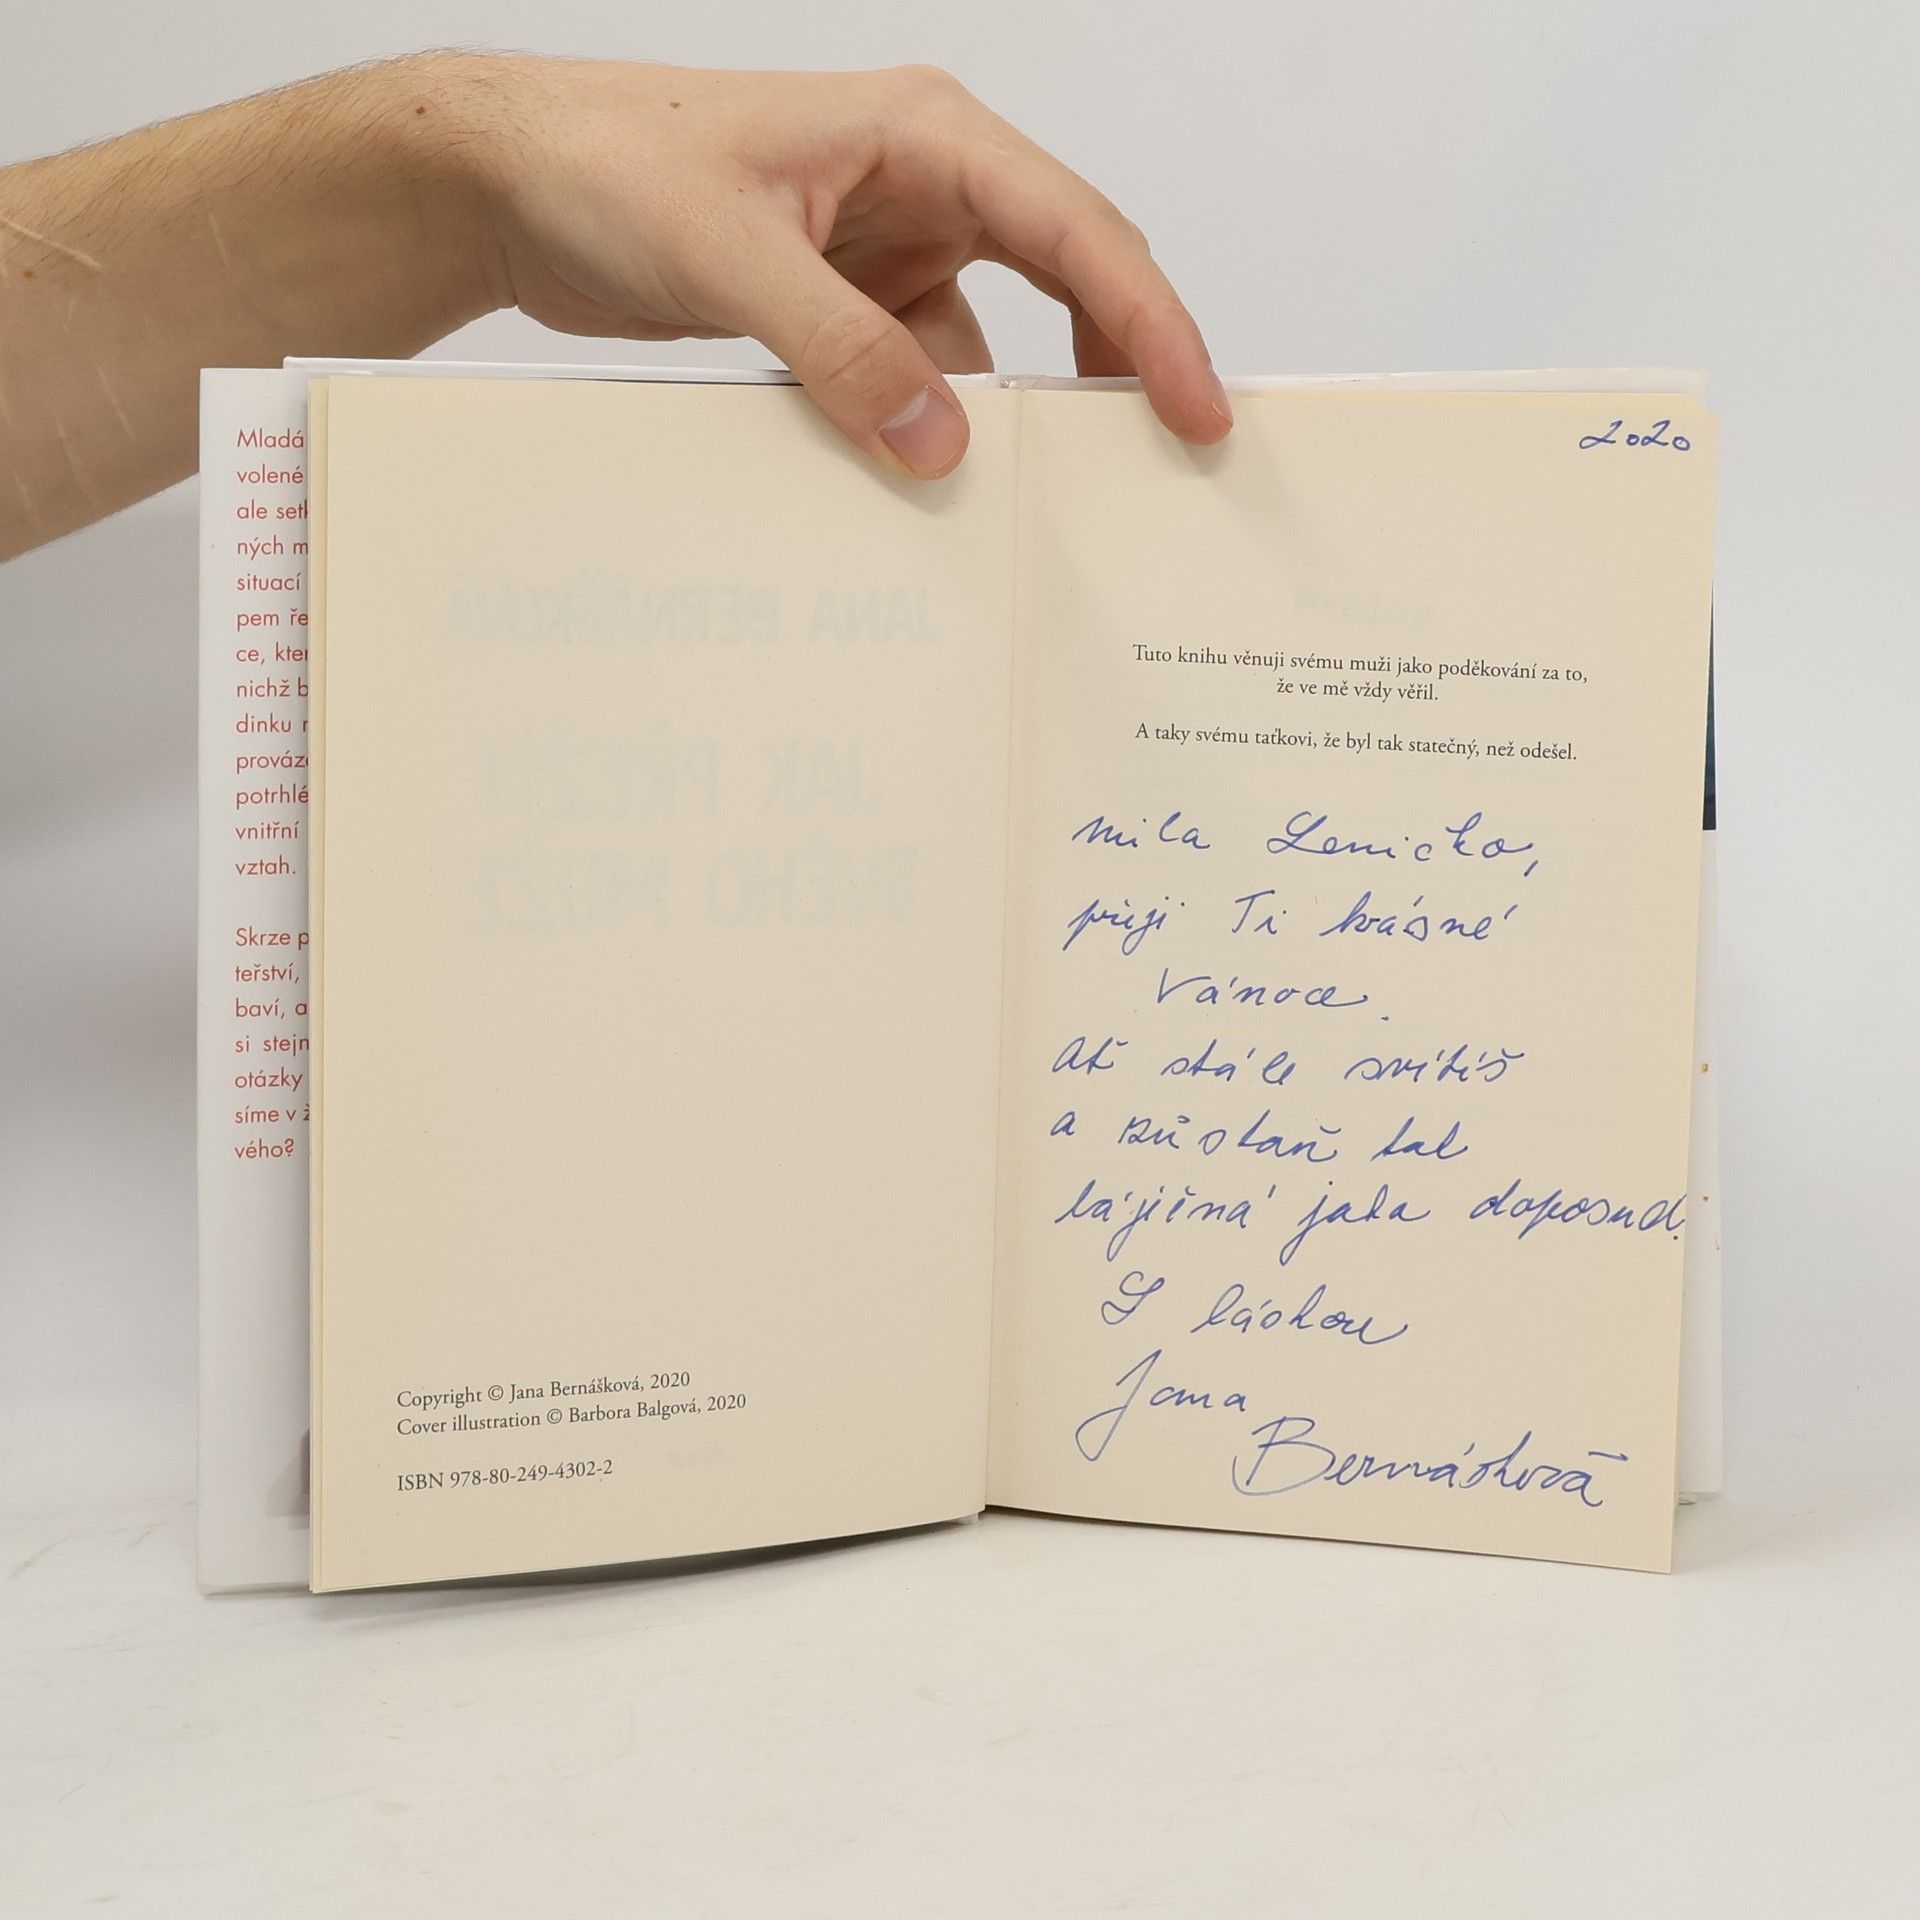 Mladá
volené
ale setk
ných m
situací
pem ře
ce, kter
nichž b
dinku r
prováze
potrhlé
vnitřní
vztah.
Skrze p
teřství,
baví, a
si stejn
otázky
síme v ž
vého?
JANA BERNÁŠKOVÁ
JAK PŘEŽÍT
SVÉHO MUŽE
Copyright © Jana Bernášková, 2020
Cover illustration © Barbora Balgová, 2020
ISBN 978-80-249-4302-2
2020
Tuto knihu věnuji svému muži jako poděkování za to,
že ve mě vždy věřil.
A taky svému taťkovi, že byl tak statečný, než odešel.
Mila Lenicko,
přeji Ti krásné
Vánoce.
Ať stále svítíš
a zůstaň tak
báječná jako doposud.
S láskou
Jana
Bernášková